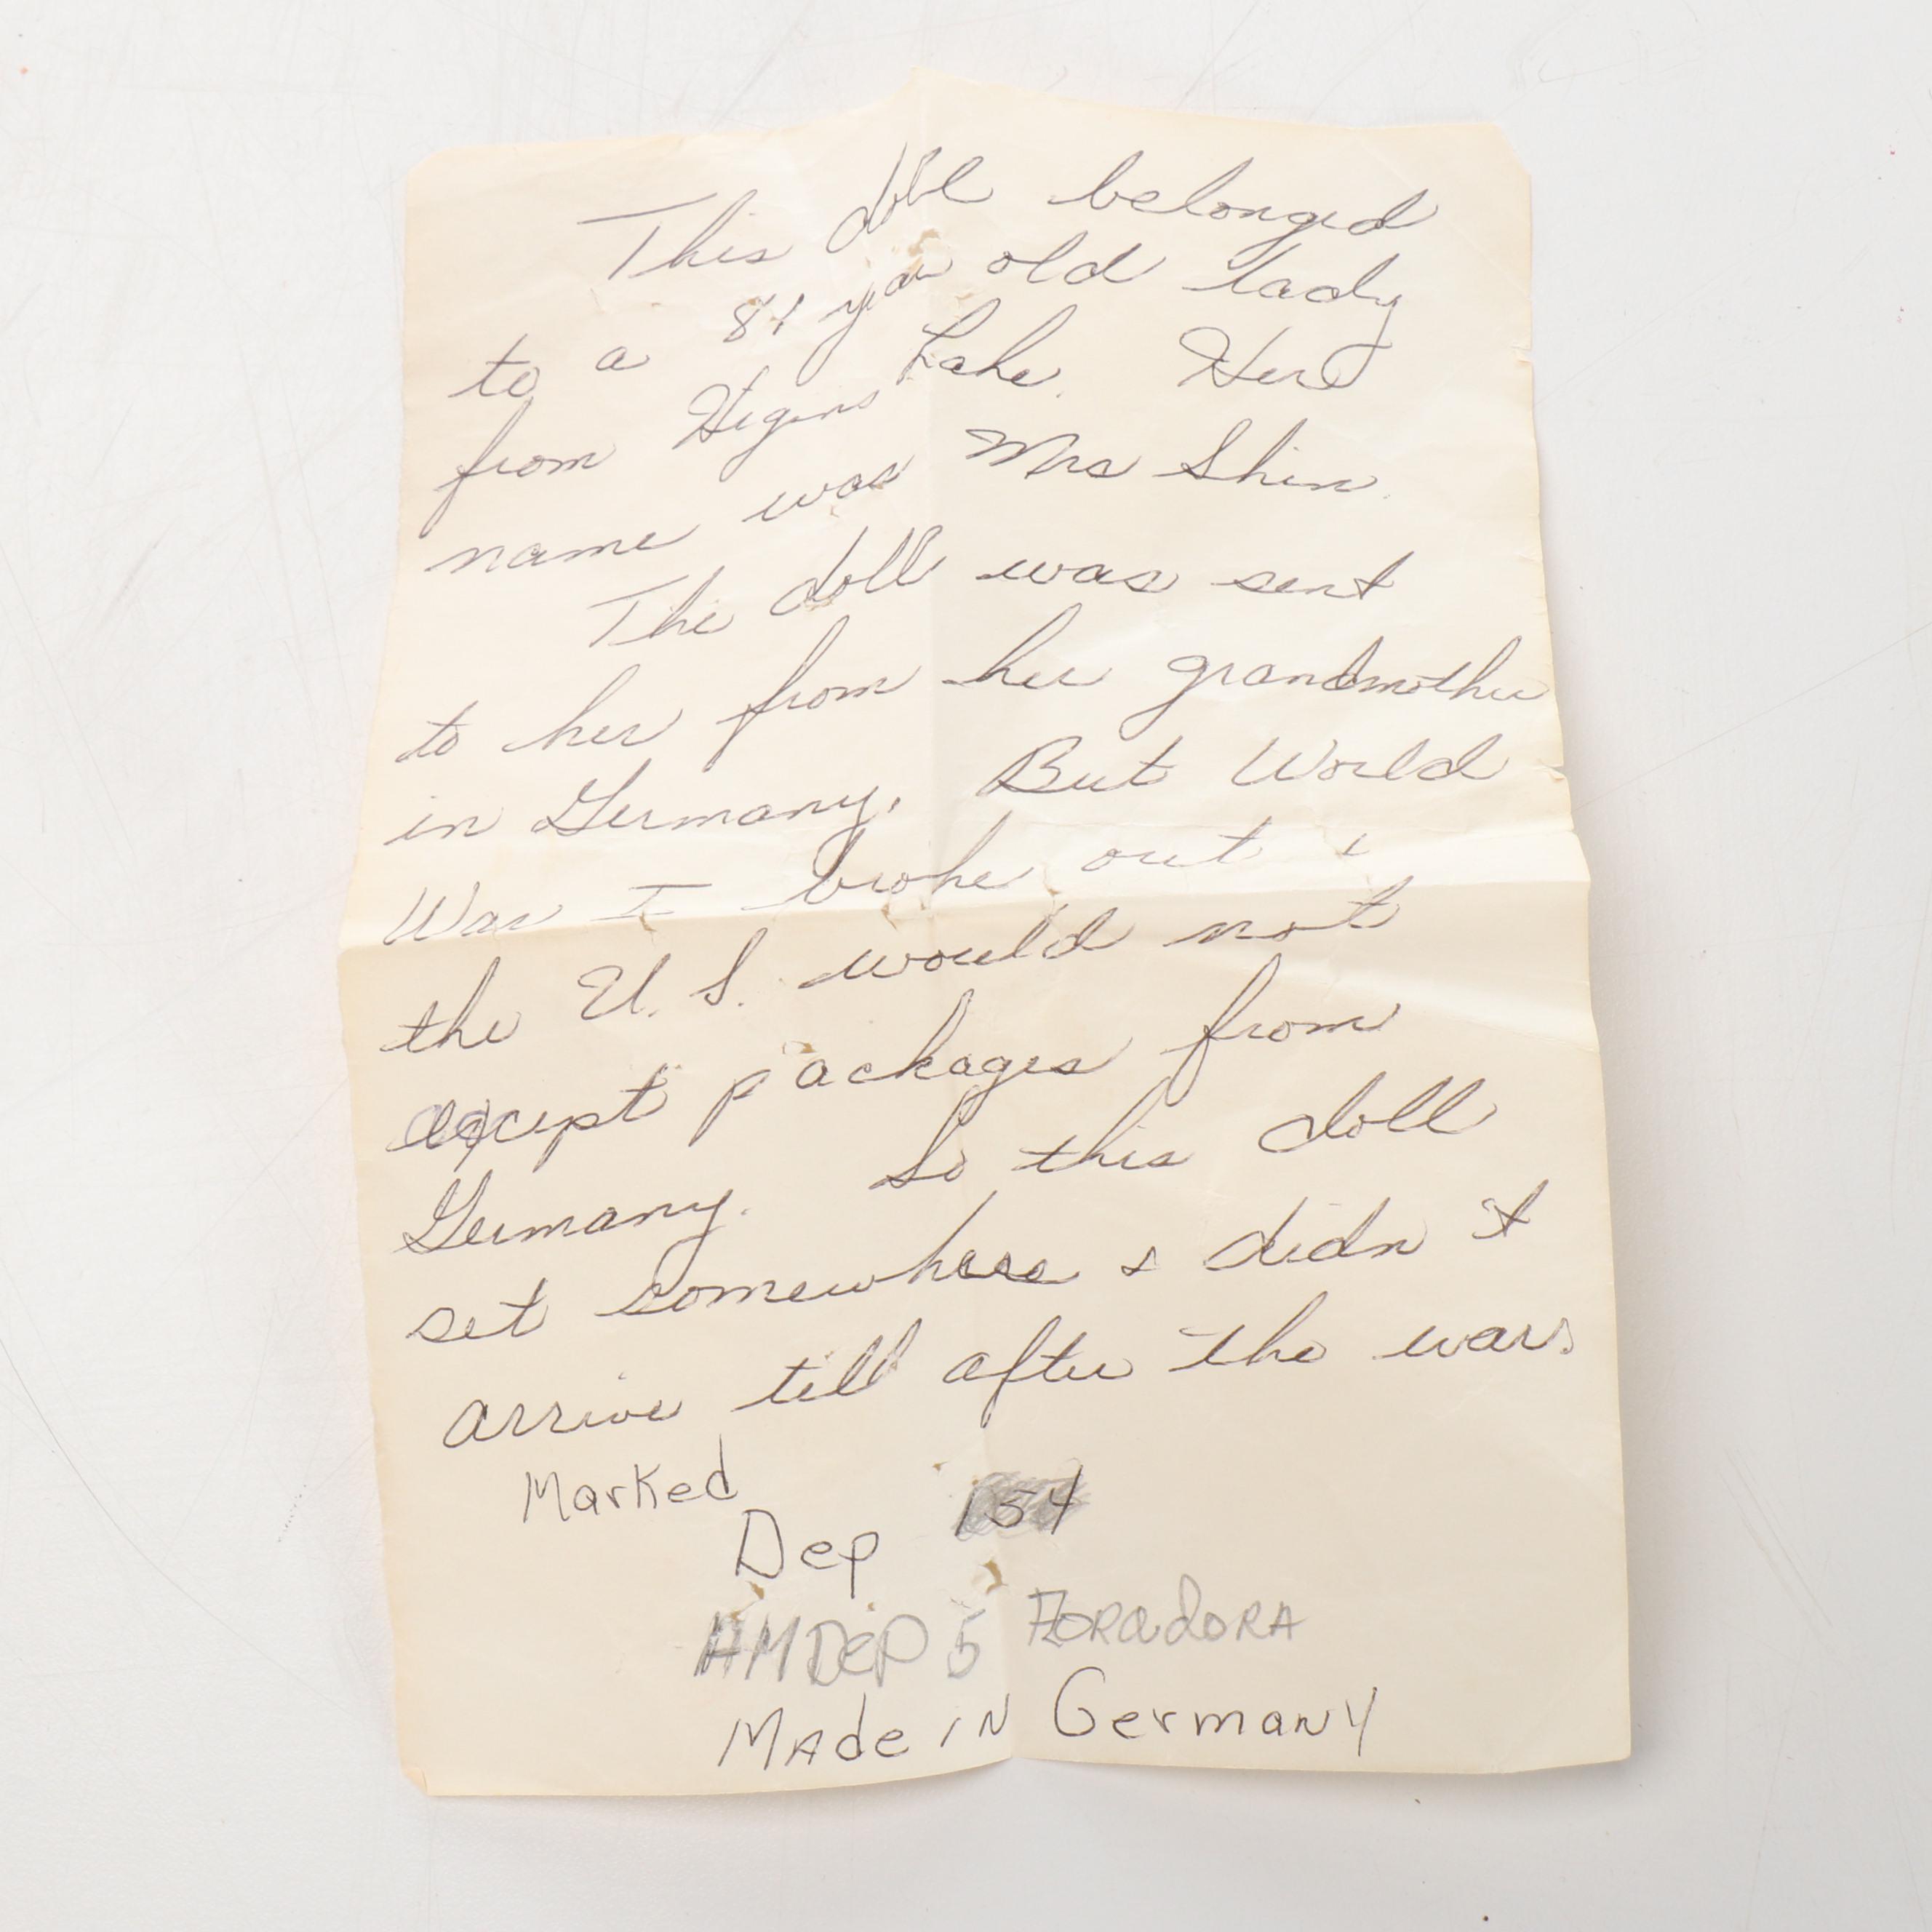 This doll belonged
to a 81 year old lady
from Higins Lake. Here
name was Mrs Shin.
The doll was sent
to her from her grandmother
in Germany. But World
War I broke out &
the U.S. would not
except packages from
Germany. So this doll
set somewhere & didn't
arrive till after the war.
Marked
Dep 154
AM DEP 5 FloRadoRA
Made iN GermaNy